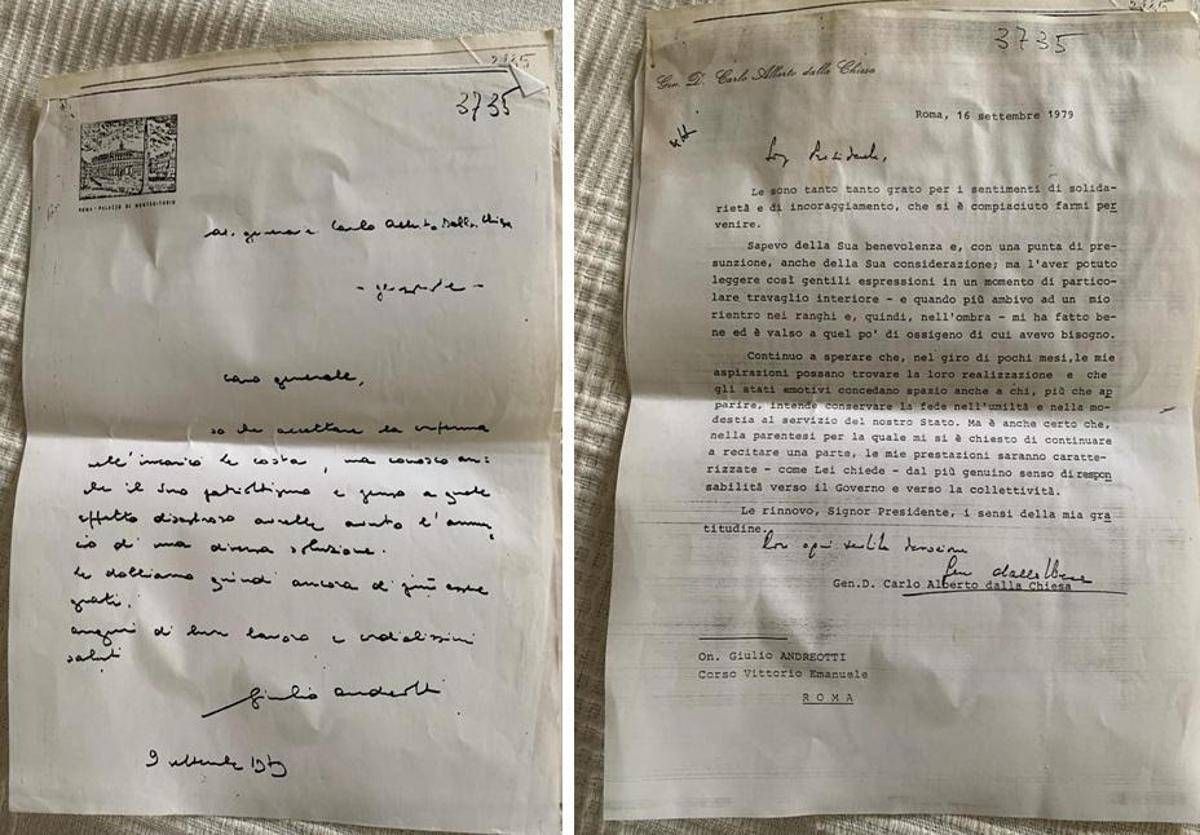 3735
ROMA - PALAZZO DI MONTECITORIO
al generale Carlo Alberto Dalla Chiesa
caro generale,
so che accettare la conferma
nell'incarico le costa, ma conosco an:
che il Suo patriottismo e penso a quale
effetto disastroso avrebbe avuto l'annun
cio di una diversa soluzione.
Le dobbiamo quindi ancora di più essere
grati.
auguri di buon lavoro e cordialissimi
saluti
Giulio Andreotti
9 settembre 1979
3735
Gen. D. Carlo Alberto dalla Chiesa
Roma, 16 settembre 1979
Sig. Presidente,
Le sono tanto tanto grato per i sentimenti di solida-
rietà e di incoraggiamento, che si è compiaciuto farmi per
venire.
Sapevo della Sua benevolenza e, con una punta di pre-
sunzione, anche della Sua considerazione; ma l'aver potuto
leggere così gentili espressioni in un momento di partico-
lare travaglio interiore - e quando più ambivo ad un mio
rientro nei ranghi e, quindi, nell'ombra - mi ha fatto be-
ne ed è valso a quel po' di ossigeno di cui avevo bisogno.
Continuo a sperare che, nel giro di pochi mesi,le mie
aspirazioni possano trovare la loro realizzazione e che
gli stati emotivi concedano spazio anche a chi, più che ap
parire, intende conservare la fede nell'umiltà e nella mo-
destia al servizio del nostro Stato. Ma è anche certo che,
nella parentesi per la quale mi si è chiesto di continuare
a recitare una parte, le mie prestazioni saranno caratte-
rizzate - come Lei chiede - dal più genuino senso di respon
sabilità verso il Governo e verso la collettività.
Le rinnovo, Signor Presidente, i sensi della mia gra
titudine.
Con ogni sentita devozione
Gen dalla Chiesa
Gen.D. Carlo Alberto dalla Chiesa
On. Giulio ANDREOTTI
Corso Vittorio Emanuele
ROMA